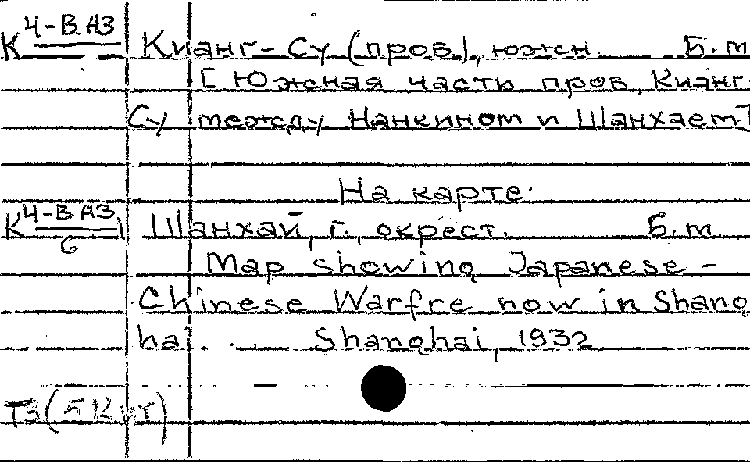 К 4-В.АЗ Кианг-Су (пров.), южн. Б.м
[Южная часть пров. Кианг-
Су между Нанкином и Шанхаем]
На карте:
К 4-В АЗ/6 Шанхай, г., окрест. Б.м
Map showing Japanese-
Chinese Warfre now in Shang
hai. Shanghai, 1932